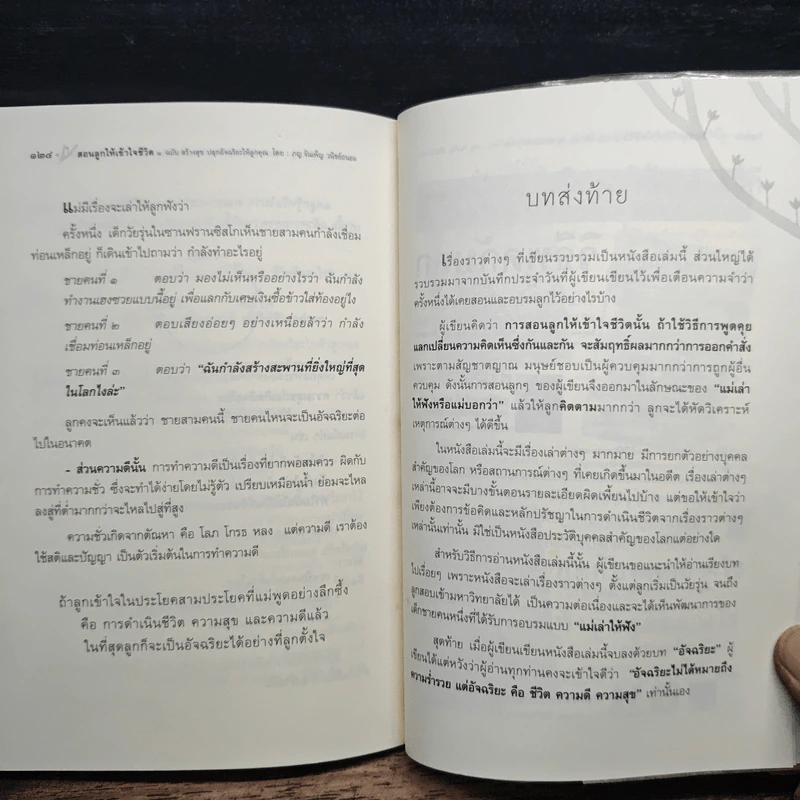 ๑๒๔ - สอนลูกให้เข้าใจชีวิต ๑ ฉบับ สร้างสุข ปลุกอัจฉริยะให้ลูกคุณ โดย : ภญ.จันเพ็ญ
แม่มีเรื่องจะเล่าให้ลูกฟังว่า
ครั้งหนึ่ง เด็กวัยรุ่นในซานฟรานซิสโกเห็นชายสามคนกำลังเชื่อม
ท่อนเหล็กอยู่ ก็เดินเข้าไปถามว่า กำลังทำอะไรอยู่
ชายคนที่ ๑ ตอบว่า มองไม่เห็นหรืออย่างไรว่า ฉันกำลัง
ทำงานเฮงซวยแบบนี้อยู่ เพื่อแลกกับเศษเงินซื้อข้าวใส่ท้องอยู่ไง
ชายคนที่ ๒ ตอบเสียงอ่อยๆ อย่างเหนื่อยล้าว่า กำลัง
เชื่อมท่อนเหล็กอยู่
ชายคนที่ ๓ ตอบว่า “ฉันกำลังสร้างสะพานที่ยิ่งใหญ่ที่สุด
ในโลกไงล่ะ”
ลูกคงจะเห็นแล้วว่า ชายสามคนนี้ ชายคนไหนจะเป็นอัจฉริยะต่อ
ไปในอนาคต
- ส่วนความดีนั้น การทำความดีเป็นเรื่องที่ยากพอสมควร ผิดกับ
การทำความชั่ว ซึ่งจะทำได้ง่ายโดยไม่รู้ตัว เปรียบเหมือนน้ำ ย่อมจะไหล
ลงสู่ที่ต่ำมากกว่าจะไหลไปสู่ที่สูง
ความชั่วเกิดจากตัณหา คือ โลภ โกรธ หลง แต่ความดี เราต้อง
ใช้สติและปัญญา เป็นตัวเริ่มต้นในการทำความดี
ถ้าลูกเข้าใจในประโยคสามประโยคที่แม่พูดอย่างลึกซึ้ง
คือ การดำเนินชีวิต ความสุข และความดีแล้ว
ในที่สุดลูกก็จะเป็นอัจฉริยะได้อย่างที่ลูกตั้งใจ
บทส่งท้าย
เรื่องราวต่างๆ ที่เขียนรวบรวมเป็นหนังสือเล่มนี้ ส่วนใหญ่ได้
รวบรวมมาจากบันทึกประจำวันที่ผู้เขียนเขียนไว้เพื่อเตือนความจำว่า
ครั้งหนึ่งได้เคยสอนและอบรมลูกไว้อย่างไรบ้าง
ผู้เขียนคิดว่า การสอนลูกให้เข้าใจชีวิตนั้น ถ้าใช้วิธีการพูดคุย
แลกเปลี่ยนความคิดเห็นซึ่งกันและกัน จะสัมฤทธิ์ผลมากกว่าการออกคำสั่ง
เพราะตามสัญชาตญาณ มนุษย์ชอบเป็นผู้ควบคุมมากกว่าการถูกผู้อื่น
ควบคุม ดังนั้นการสอนลูกๆ ของผู้เขียนจึงออกมาในลักษณะของ “แม่เล่า
ให้ฟังหรือแม่บอกว่า” แล้วให้ลูกคิดตามมากกว่า ลูกจะได้หัดวิเคราะห์
เหตุการณ์ต่างๆ ได้ดีขึ้น
ในหนังสือเล่มนี้จะมีเรื่องเล่าต่างๆ มากมาย มีการยกตัวอย่างบุคคล
สำคัญของโลก หรือสถานการณ์ต่างๆ ที่เคยเกิดขึ้นมาในอดีต เรื่องเล่าต่างๆ
เหล่านี้อาจจะมีบางขั้นตอนรายละเอียดผิดเพี้ยนไปบ้าง แต่ขอให้เข้าใจว่า
เพียงต้องการข้อคิดและหลักปรัชญาในการดำเนินชีวิตจากเรื่องราวต่างๆ
เหล่านั้นเท่านั้น มิใช่เป็นหนังสือประวัติบุคคลสำคัญของโลกแต่อย่างใด
สำหรับวิธีการอ่านหนังสือเล่มนี้นั้น ผู้เขียนขอแนะนำให้อ่านเรียงบท
ไปเรื่อยๆ เพราะหนังสือจะเล่าเรื่องราวต่างๆ ตั้งแต่ลูกเริ่มเป็นวัยรุ่น จนถึง
ลูกสอบเข้ามหาวิทยาลัยได้ เป็นความต่อเนื่องและจะได้เห็นพัฒนาการของ
เด็กชายคนหนึ่งที่ได้รับการอบรมแบบ “แม่เล่าให้ฟัง”
สุดท้าย เมื่อผู้เขียนเขียนหนังสือเล่มนี้จบลงด้วยบท “อัจฉริยะ” ผู้
เขียนได้แต่หวังว่าผู้อ่านทุกท่านคงจะเข้าใจดีว่า “อัจฉริยะไม่ได้หมายถึง
ความร่ำรวย แต่อัจฉริยะ คือ ชีวิต ความดี ความสุข” เท่านั้นเอง